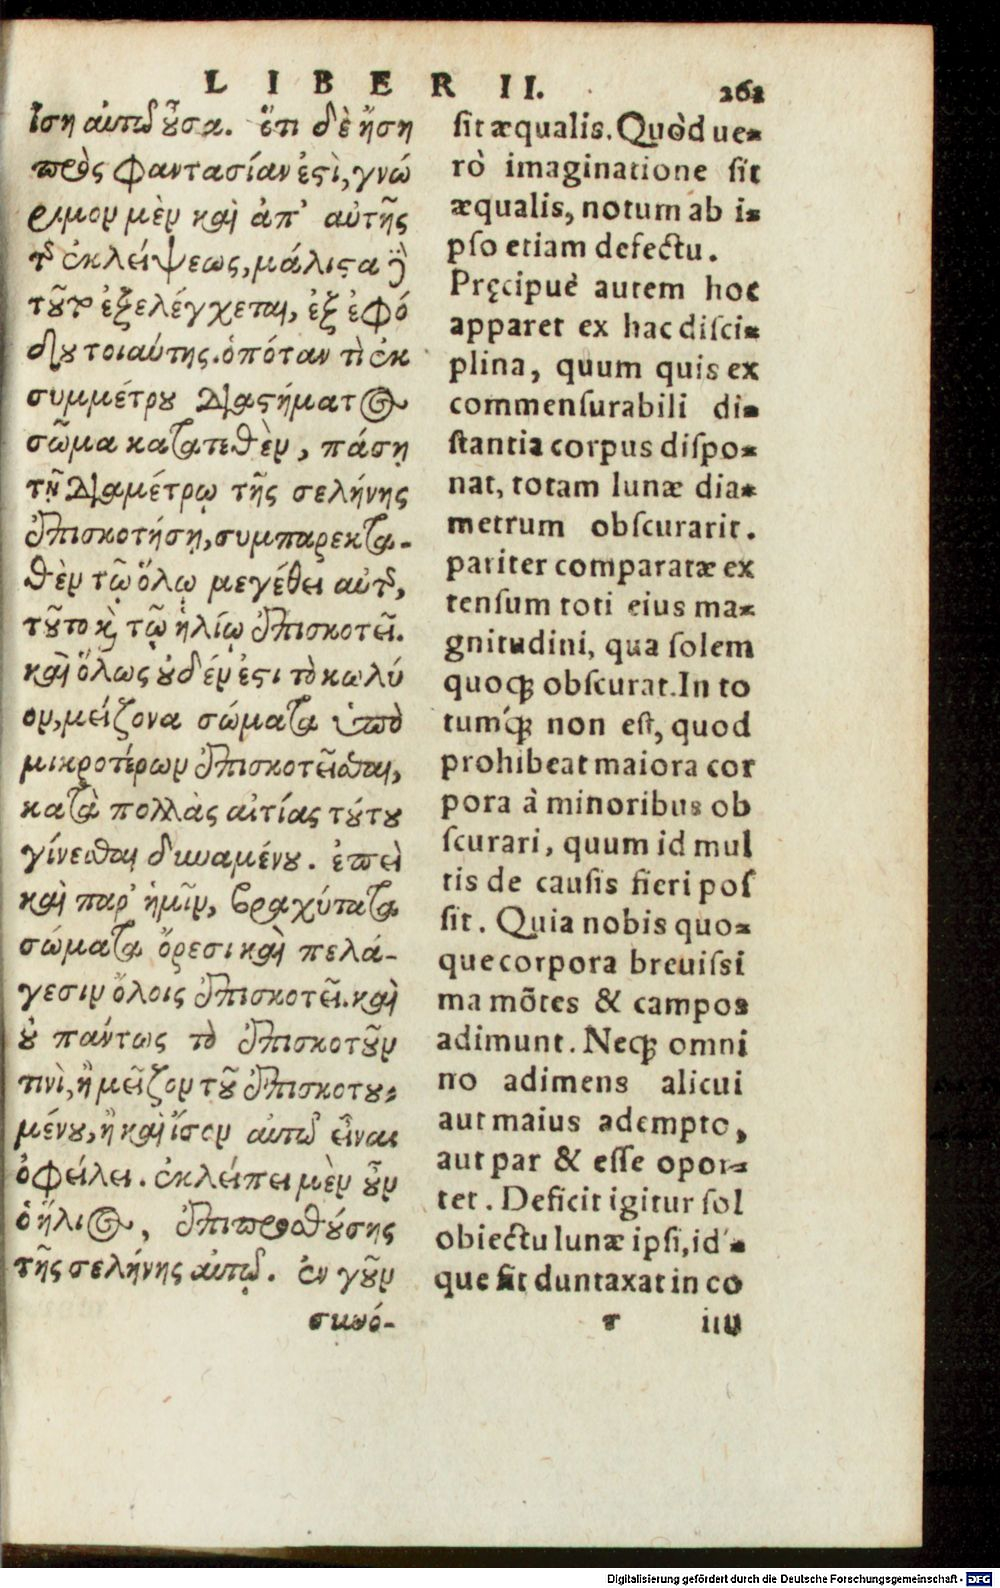 LIBER II. 262
ἴση αὐτῷ οὖσα. ὅτι δὲ ἤση
πρὸς φαντασίαν ἐστὶ, γνώ
ριμον μὲν καὶ ἀπ' αὐτῆς
τῆς ἐκλείψεως, μάλιστα δὲ
τοῦτο ἐξελέγχεται, ἐξ ἐφό
δου τοιαύτης. ὁπόταν τὶ ἐκ
συμμέτρου διαστήματος
σῶμα κατατεθὲν, πάσῃ
τῇ διαμέτρῳ τῆς σελήνης
ἐπισκοτήσῃ, συμπαρεκτα-
θὲν τῷ ὅλῳ μεγέθει αὐτῆς,
τοῦτο καὶ τῷ ἡλίῳ ἐπισκοτεῖ.
καὶ ὅλως οὐδέν ἐστι τὸ κωλύ
ον, μείζονα σώματα ὑπὸ
μικροτέρων ἐπισκοτεῖσθαι,
κατὰ πολλὰς αἰτίας τούτου
γίνεσθαι δυναμένου. ἐπεὶ
καὶ παρ' ἡμῖν, βραχύτατα
σώματα ὄρεσι καὶ πελά-
γεσιν ὅλοις ἐπισκοτεῖ. καὶ
οὐ πάντως τὸ ἐπισκοτοῦν
τινὶ, ἢ μεῖζον τοῦ ἐπισκοτου-
μένου, ἢ καὶ ἴσον αὐτῷ εἶναι
ὀφείλει. ἐκλείπει μὲν οὖν
ὁ ἥλιος, ἐπιπροσθούσης
τῆς σελήνης αὐτῷ. ἐν γοῦν
συνό-
sit æqualis. Quòd ue-
rò imaginatione sit
æqualis, notum ab i-
pso etiam defectu.
Pręcipuè autem hoc
apparet ex hac disci-
plina, quum quis ex
commensurabili di-
stantia corpus dispo-
nat, totam lunæ dia-
metrum obscurarit.
pariter comparatæ ex
tensum toti eius ma-
gnitudini, qua solem
quoq; obscurat. In to
tumq́; non est, quod
prohibeat maiora cor
pora à minoribus ob
scurari, quum id mul
tis de causis fieri pos
sit. Quia nobis quo-
que corpora breuissi
ma mõtes & campos
adimunt. Neq; omni
no adimens alicui
aut maius adempto,
aut par & esse opor-
tet. Deficit igitur sol
obiectu lunæ ipsi, id-
que fit duntaxat in co
r iiij
Digitalisierung gefördert durch die Deutsche Forschungsgemeinschaft - DFG